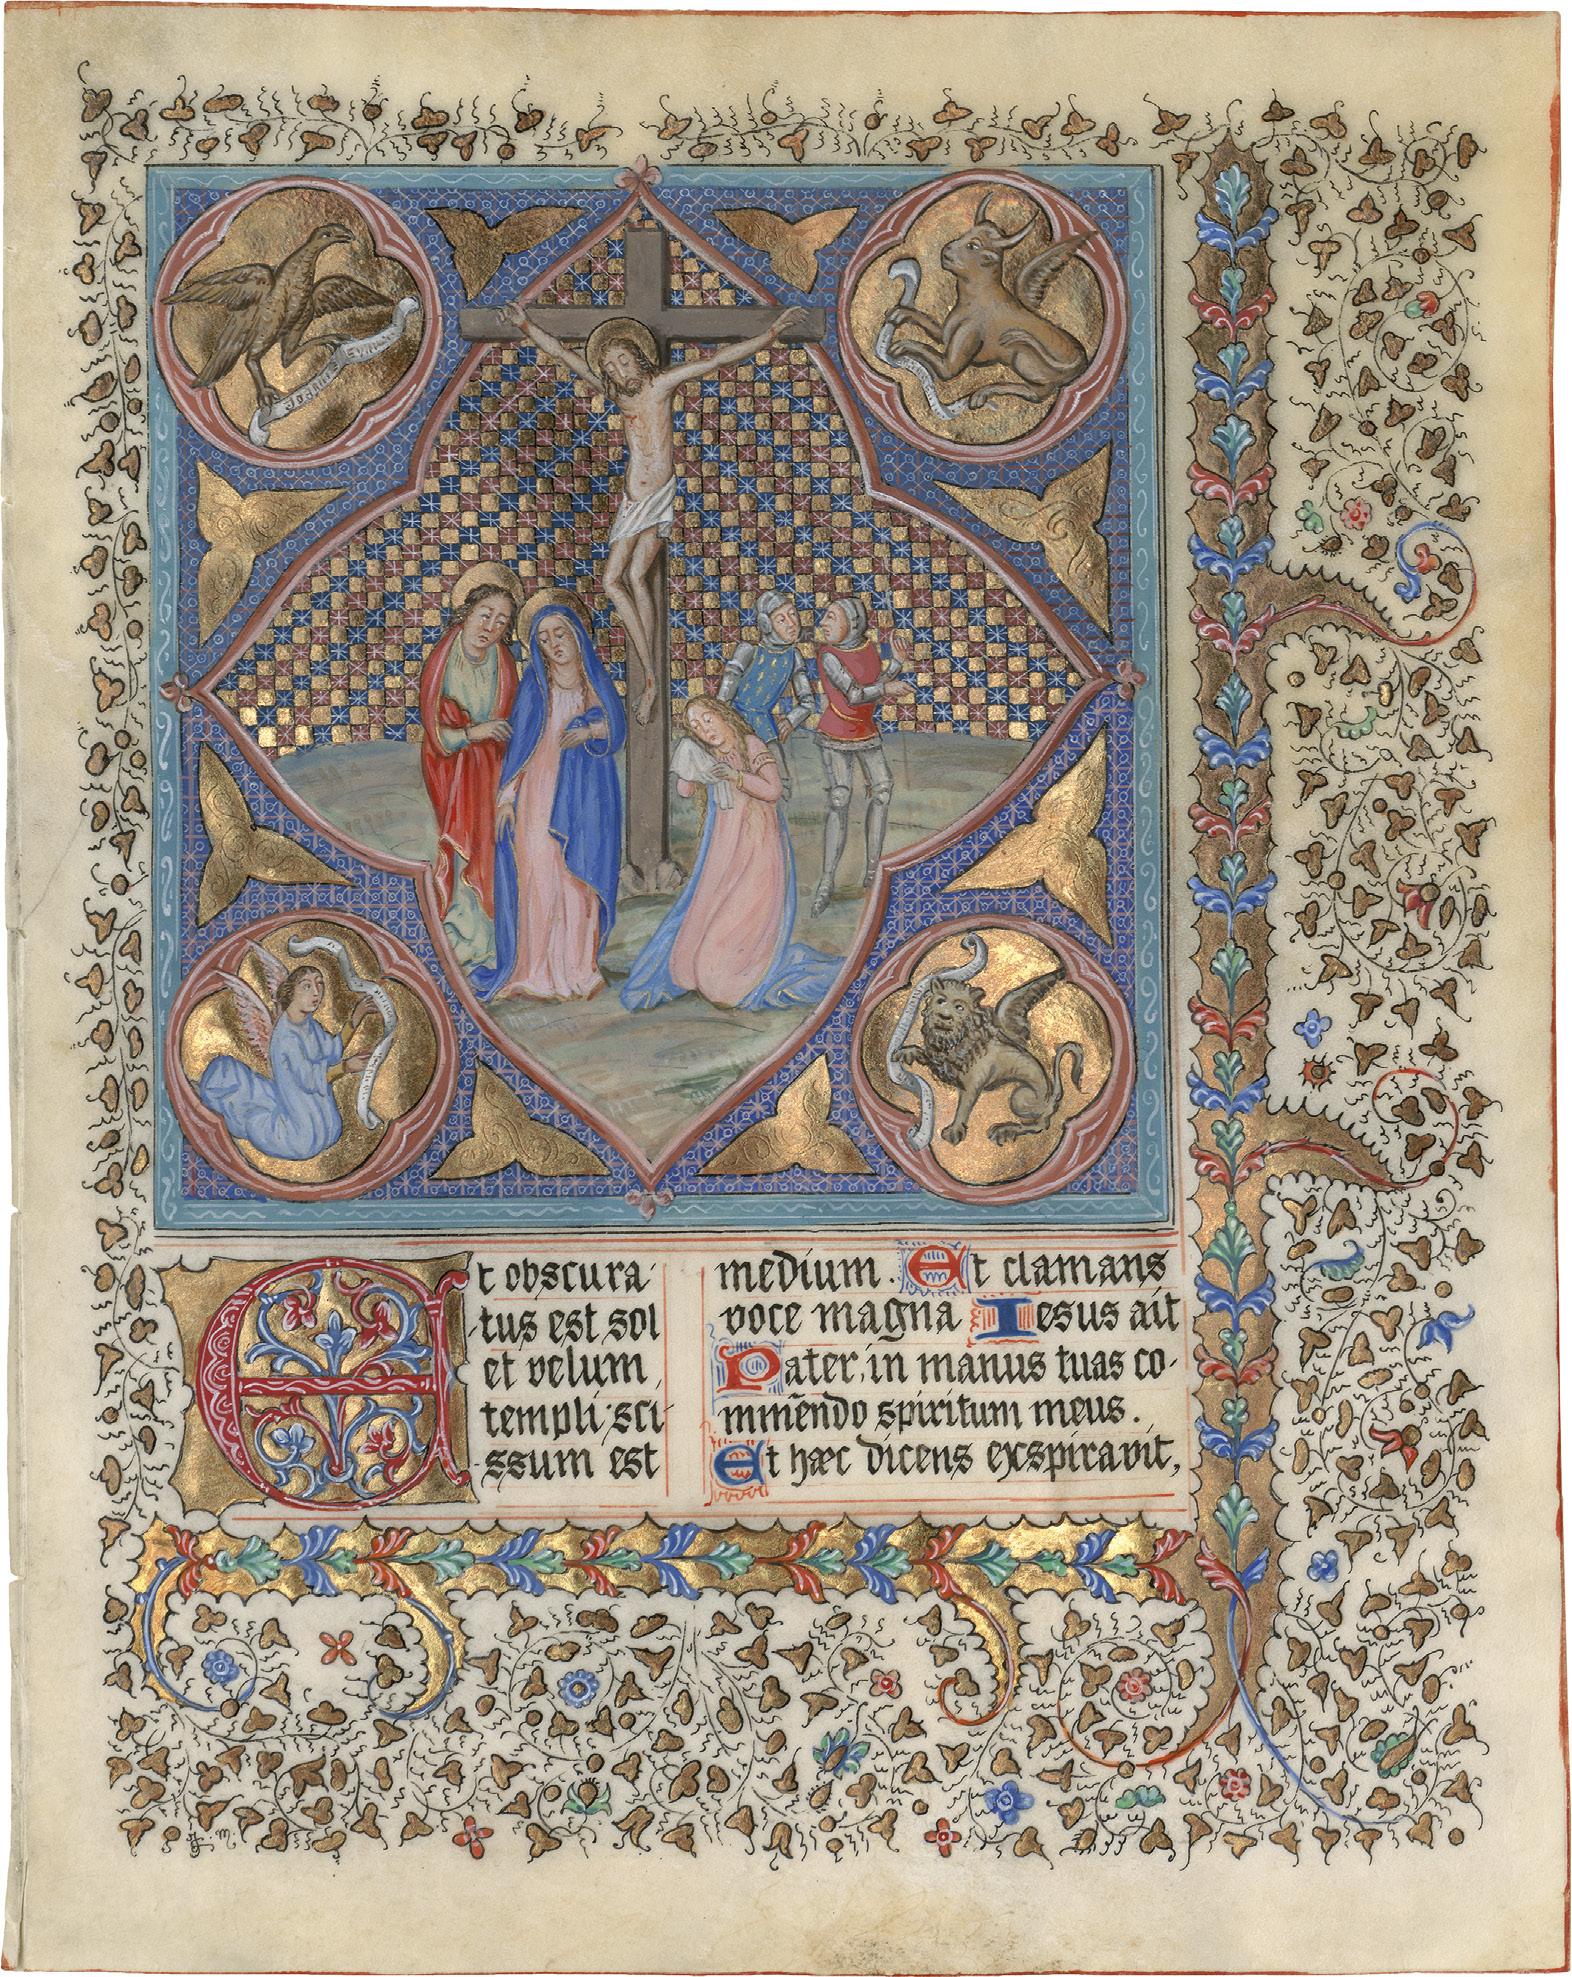 Joannis
Et obscura-
tus est sol
et velum
templi sci-
ssum est
medium. Et clamans
voce magna Iesus ait
Pater, in manus tuas co-
mmēndo spiritum meus.
Et hæc dicens exspiravit,